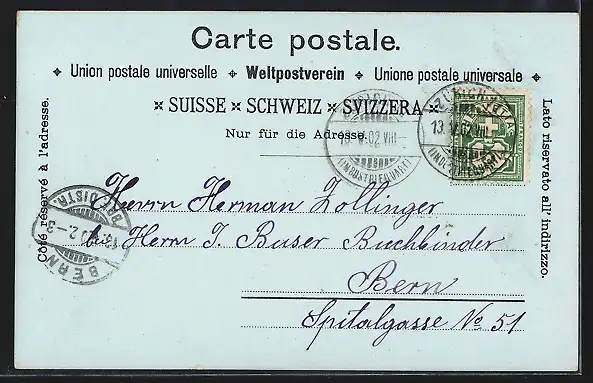 Carte postale.
Union postale universelle Weltpostverein Unione postale universale
SUISSE SCHWEIZ SVIZZERA
Nur für die Adresse.
Côté réservé à l'adresse.
Lato riservato all' indirizzo.
13. V. 02. VIII
(INDUSTRIEQUART)
13. V. 02. VIII
HELVETIA
BERN
BRF. DISTR.
Herrn Herman Zollinger
bei Herrn J. Buser Buchbinder
Bern
Spitalgasse No 51